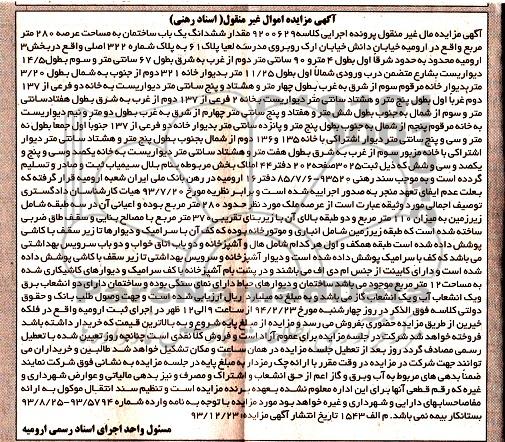 آگهی مزایده اموال غیر منقول( اسناد رهنی)
آگهی مزایده مال غیر منقول پرونده اجرایی کلاسه ۹۲۰۰۶۲۹ مقدار ششدانگ یک باب ساختمان به مساحت عرصه ۲۸۰ متر
مربع واقع در ارومیه خیابان دانش خیابان ارک روبروی مدرسه لعیا پلاک ۶۱ به پلاک شماره ۳۲۲ اصلی واقع در بخش ۳
ارومیه محدود به حدود شرقا اول بطول ۴ متر و ۹۰ سانتی متر دوم از غرب به شرق بطول ۶۷ سانتی متر و سوم بطول ۱۴/۵
دیواریست بشارع متضمن درب ورودی شمالا اول بطول ۱۱/۲۵ متر بدیوار خانه ۳۲۱ دوم از جنوب به شمال بطول ۳/۲۰
متر بدیوار خانه مرقوم سوم از شرق به غرب بطول چهار متر و هشتاد و پنج سانتی متر دیواریست به خانه دو فرعی از ۱۳۷
دوم غربا اول بطول پنج متر و سی سانتی متر دیواریست خانه ۲ فرعی از ۱۳۷ دوم از غرب به شرق بطول هفتاد سانتی
متر و سوم از شمال به جنوب بطول شش متر و هفتاد و پنج سانتی متر چهارم از شرق به غرب بطول دو متر و نیم دیواریست
به خانه مرقوم پنجم از شمال به جنوب بطول پنج متر و پانزده سانتی متر بدیوار خانه دو فرعی از ۱۳۷ جنوبا اول جمعا بطول نه
متر و سی و پنج سانتی متر دیوار اشتراکی با خانه ۱۳۵ و ۱۳۶ دوم از شمال بجنوب بطول پنج متر و هشتاد سانتی متر دیوار
اشتراکی با خانه مزبور سوم از شرق به غرب بطول هفت متر و هشتاد سانتی متر دیواریست به خانه یکصد و سی و پنج و
یکصد و سی و شش که ذیل ثبت ۲۵ صفحه ۲۰۲ دفتر ۴۴ املاک بخش مربوطه بنام بلال سیمیاب ثبت و صادر و تسلیم
گردده است و به موجب سند رهنی ۹۳۵۲۰-۸۵/۷/۶ دفتر ۱۶ ارومیه در رهن بانک ملی ایران شعبه ارومیه قرار گرفته که
بعلت عدم ایفای تعهد منجر به صدور اجراییه شده است و برابر نظریه مورخ ۹۳/۷/۲۰ هیات کارشناسان دادگستری
توصیف اجمالی مورد وثیقه عبارت است از عرصه ملک مورد نظر حدود ۲۸۰ متر مربع بوده و اعیانی آن در سه طبقه شامل
زیرزمین به میزان ۱۱۰ متر مربع و دو طبقه بالای آن با زیربنای تقریبی ۳۷۰ متر مربع با مصالح بنایی و سقف طاق ضربی
ساخته شده است که طبقه زیرزمین شامل انباری و موتورخانه بوده که کف آن با سرامیک و دیوارها تا زیر سقف با کاشی
پوشش داده شده است طبقه همکف و اول هر کدام شامل هال و آشپزخانه و دو باب اتاق خواب و دو باب سرویس بهداشتی
می باشد که کف با سرامیک پوشش داده شده و دیوار آشپزخانه و سرویس بهداشتی تا زیر سقف با کاشی پوشش داده
شده است و دارای کابینت از جنس ام دی اف می باشند و در پشت بام آشپزخانه با کف سرامیک و دیوارهای کاشیکاری شده
به مساحت ۱۲ متر مربع موجود می باشد ساختمان و دیوارهای حیاط دارای نمای سنگی بوده و ساختمان دارای دو انشعاب برق
ویک انشعاب آب و یک انشعاب گاز می باشد و به مبلغ نه میلیارد ریال ارزیابی گردیده است و جهت وصول طلب بانک و حقوق
دولتی کلاسه فوق الذکر در روز چهارشنبه مورخ ۹۴/۲/۲۳ از ساعت ۹ الی ۱۲ ظهر در اجرای ثبت ارومیه واقع در فلکه
خیرین از طریق مزایده حضوری بفروش می رسد مزایده از مبلغ پایه شروع و به بالاترین قیمت که خریدار داشته باشد
فروخته خواهد شد شرکت در جلسه مزایده برای عموم آزاد است و فروش کلا نقدی است و چنانچه روز تعیین شده با تعطیل
رسمی مصادف گردد روز بعد از تعطیل جلسه مزایده در همان ساعت و مکان تشکیل خواهد شد طالبین و خریداران می
توانند جهت شرکت در مزایده در وقت مقرر با ارائه چک رمزدار به مبلغ پایه در جلسه مزایده به نشانی فوق شرکت نمایند
ضمنا بدهی های مربوط به آب و برق و گاز اعم از حق انشعاب و اشتراک و مصرف و نیز بدهی مالیاتی و عوارض شهرداری و
غیره که رقم قطعی آنها برای این اداره معلوم نشده به عهده برنده مزایده است و تنظیم سند انتقال موکول به ارائه
مفاصاحسابهای دارایی و شهرداری و غیره خواهد بود مورد مزایده با توجه به نامه وارده شماره ۹۳/۵۷۹۴-۹۳/۸/۲۵
بستانکار بیمه نمی باشد. م الف ۱۵۴۳ تاریخ انتشار آگهی مزایده: ۹۳/۱۲/۲۳
مسئول واحد اجرای اسناد رسمی ارومیه